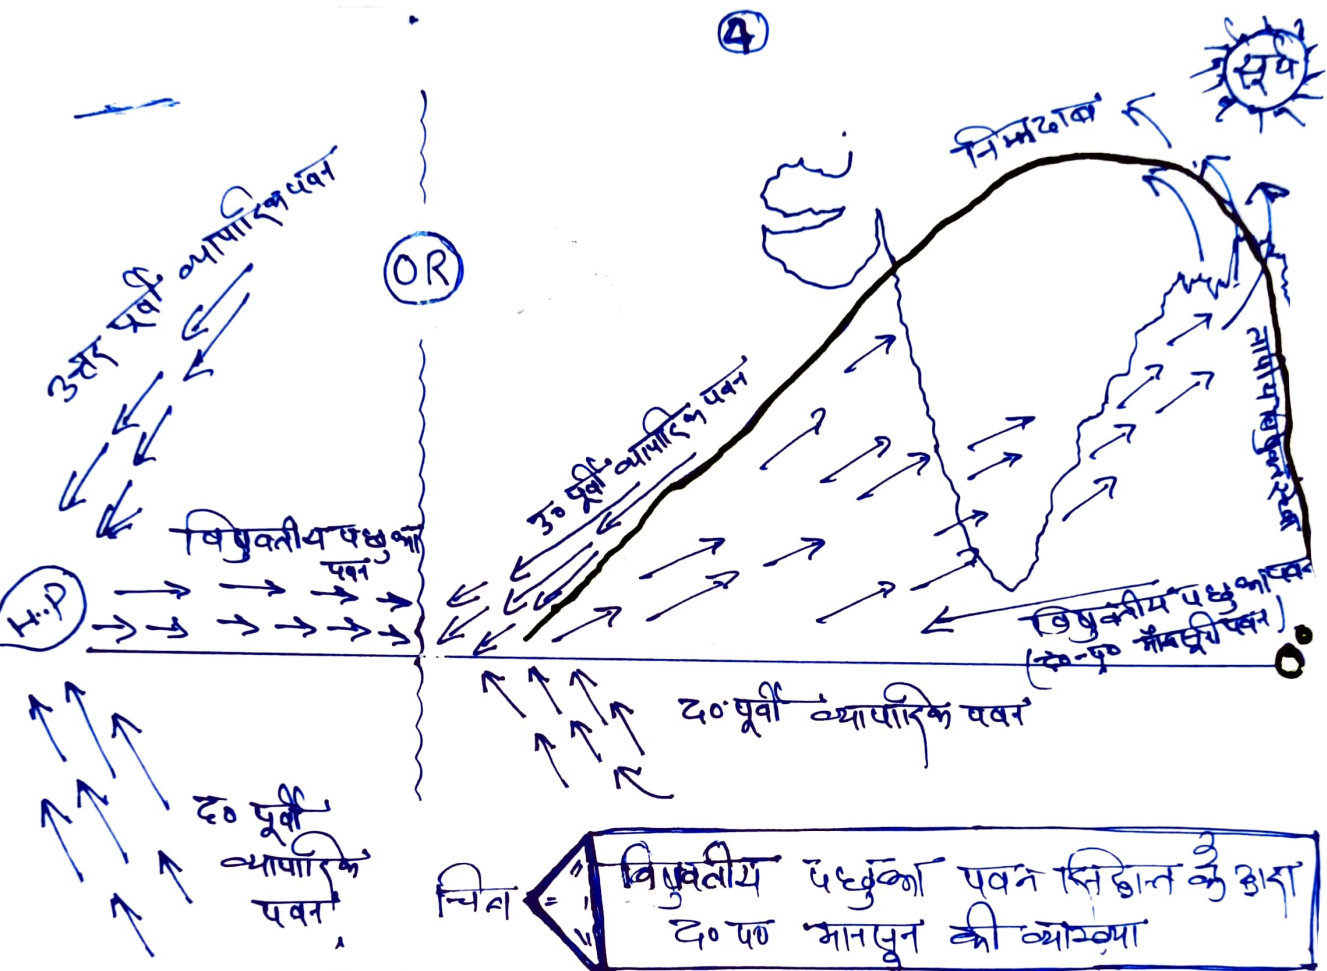 4
सूर्य
निम्नदाब
उत्तर पूर्वी व्यापारिक पवन
OR
उ० पूर्वी व्यापारिक पवन
तापीय विषुवत रेखा
विषुवतीय पछुआ
पवन
H.P
विषुवतीय पछुआ पवन
(द०-प० मानसूनी पवन)
0°
द० पूर्वी व्यापारिक पवन
द० पूर्वी
व्यापारिक
पवन
चित्र =
विषुवतीय पछुआ पवन सिद्धान्त के द्वारा
द० प० मानसून की व्याख्या